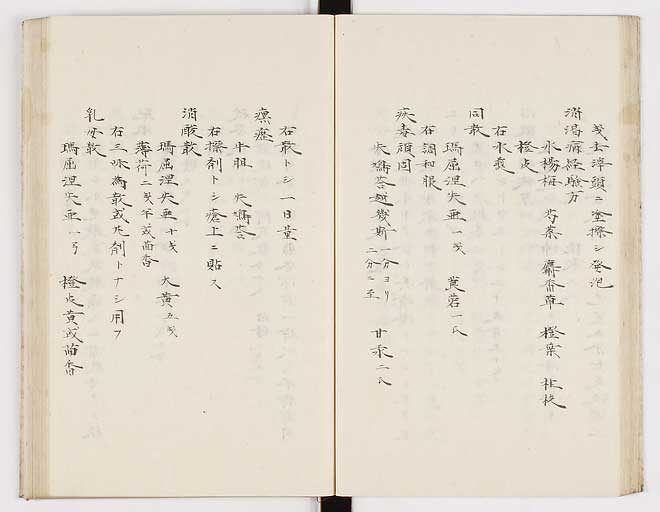 莖ヲ漳頭ニ塗擦シ發泡
消渇病経験方
水楊梅 芍薬 麝香草 橙葉 牡枝
橙皮
右水煎
同散
瑪屈涅矢亜一戔 莨菪一氏
右調和服
疾毒頑固
一分ヨリ
二分ニ至
甘汞二氏
右散トシ一日量
瘭疽
牛胆 失鷄荅
右擦剤トシ瘡上ニ貼ス
消酸散
瑪屈涅失亜十戔 大黄五戔
薄荷二戔半或茴香
右三味為散或丸剤トナシ用フ
乳母散
瑪屈涅失亜一弓 橙皮黄或茴香